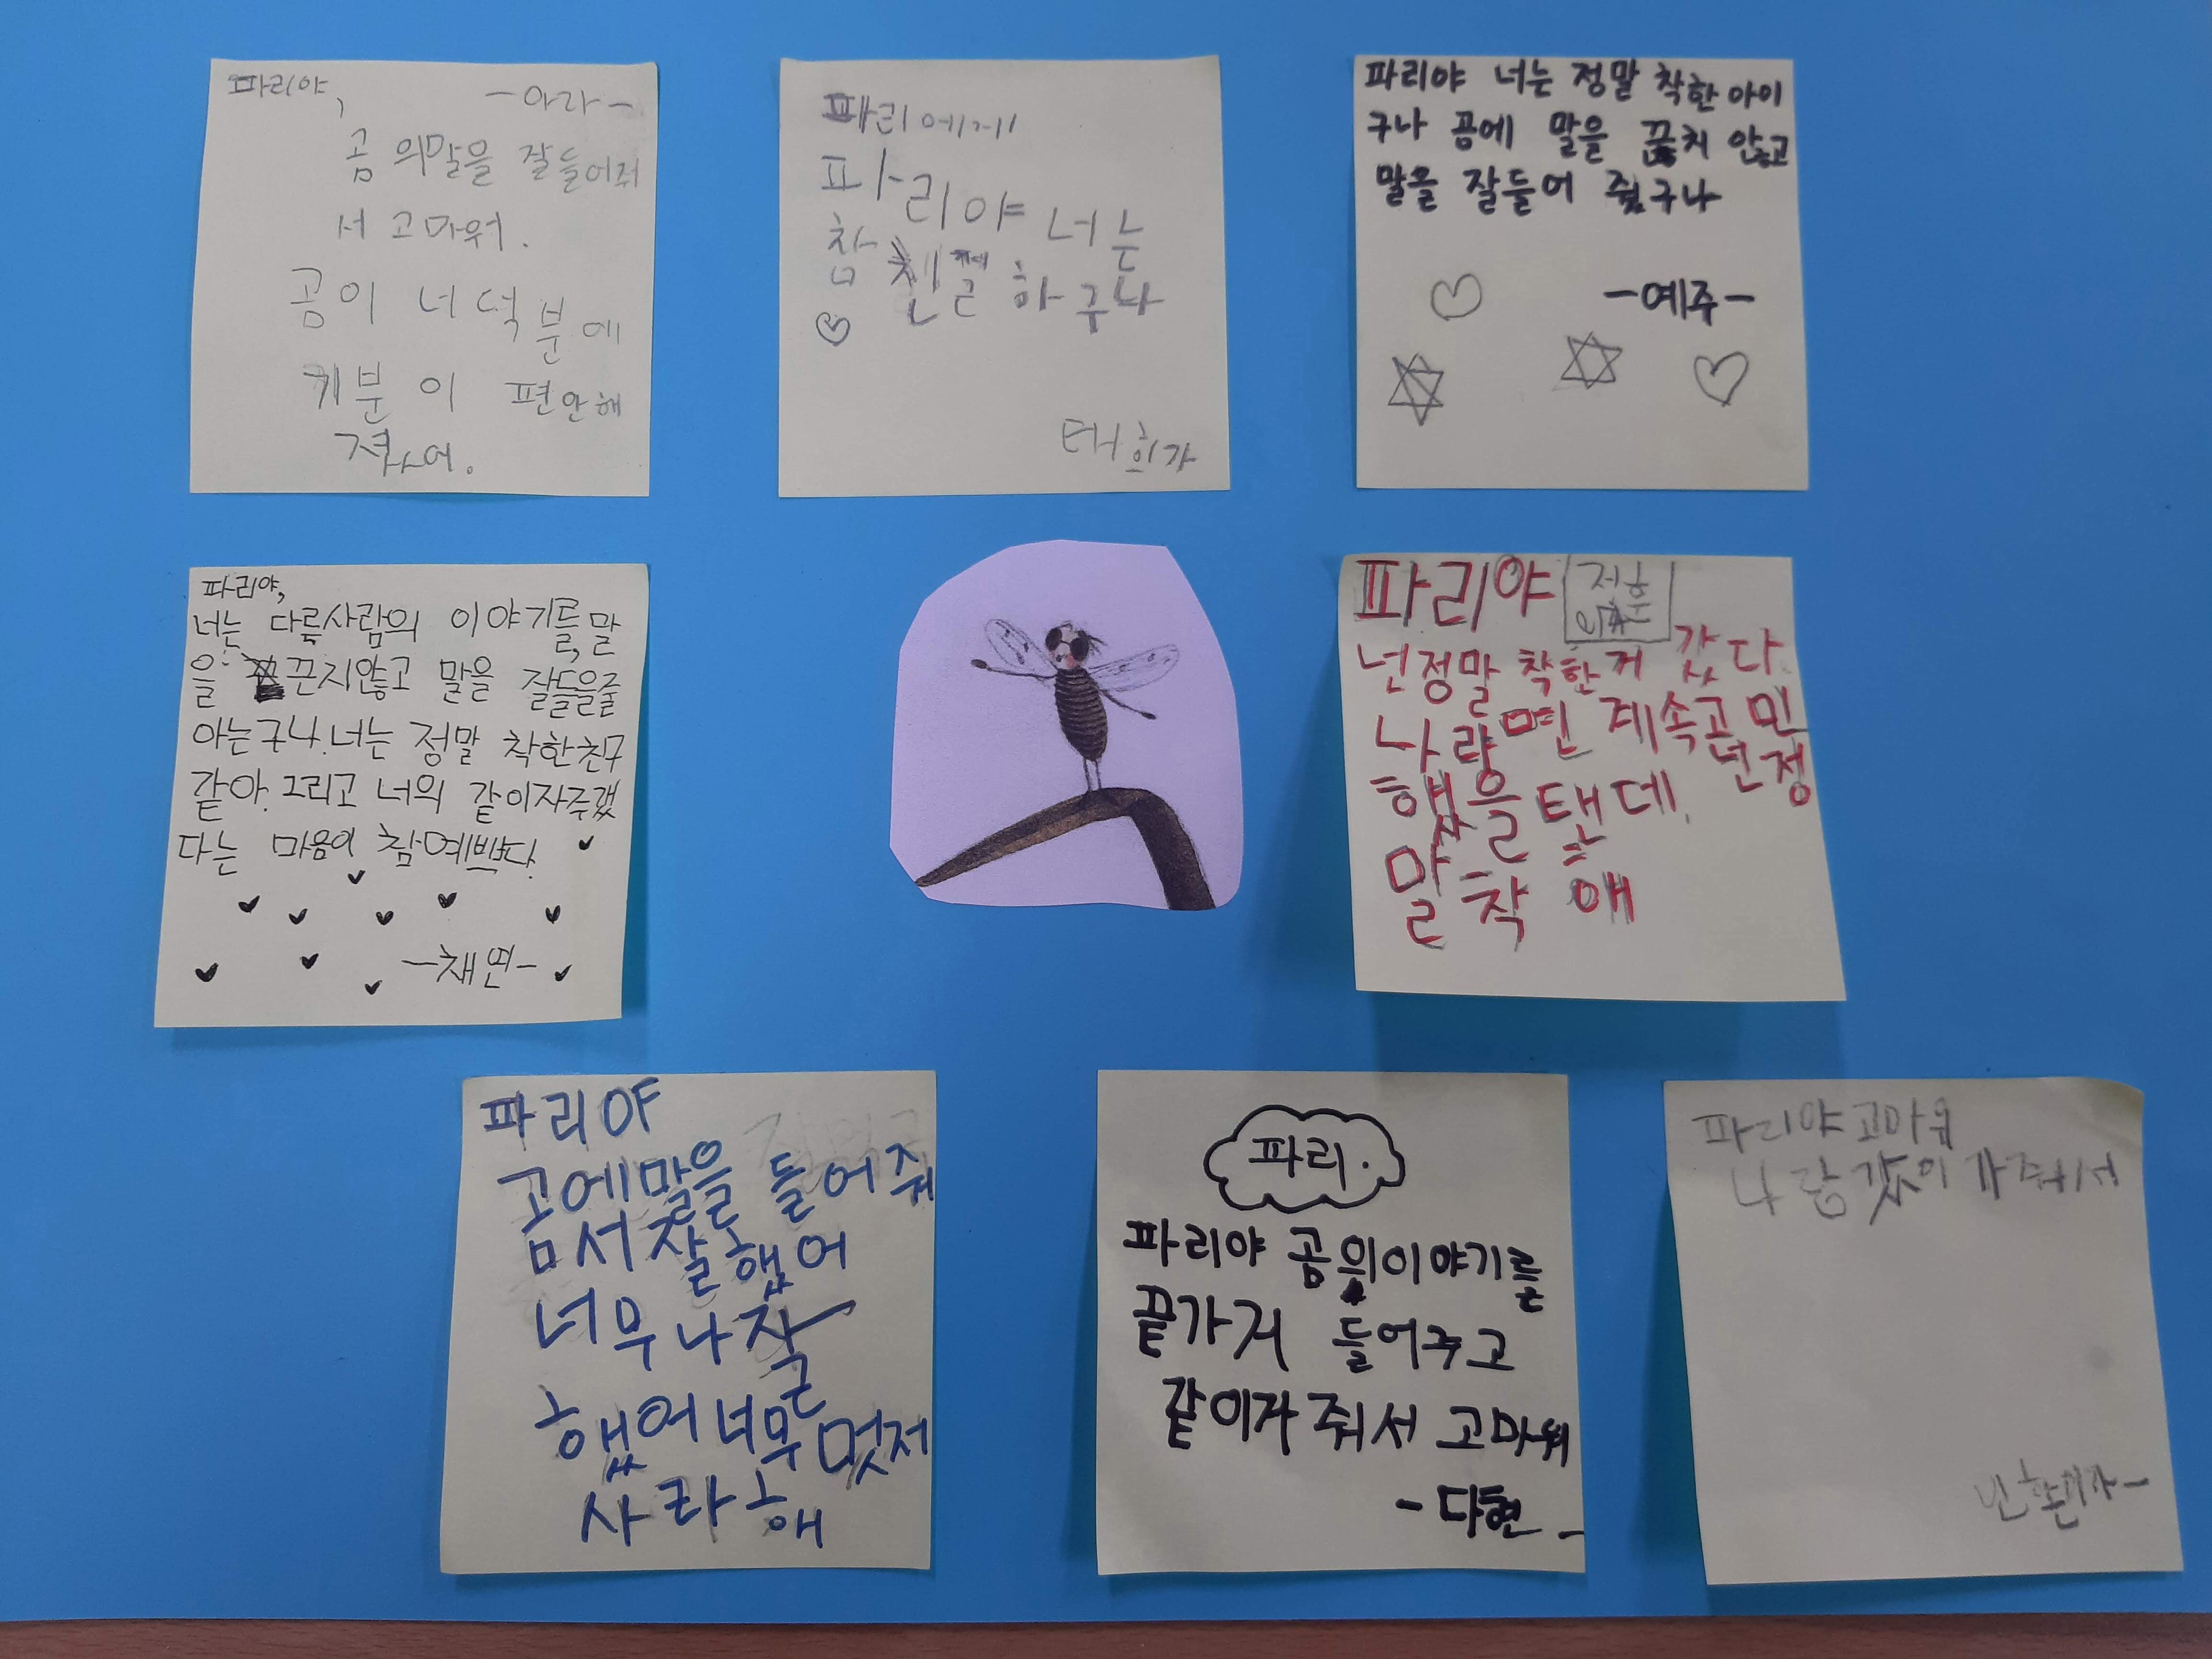 파리야,
-아라-
곰 의말을 잘들어줘
서 고마워.
곰이 너덕분에
기분이 편안해
졌어.
파리에게
파리야 너는
참 친절하구나
태희가
파리야 너는 정말 착한 아이
구나 곰에 말을 끊치 않고
말을 잘들어 줬구나
-예주-
파리야,
너는 다륵사람의 이야기를,말
을 끈지않고 말을 잘들을줄
아는구나.너는 정말 착한친구
같아.그리고 너의 같이자주겠
다는 마음이 참예쁘다.
-채연-
파리야
넌정말 착한거 갔다.
나랐면 계속고민
했을탠데. 넌정
말착해
파리야
곰에말을 들어줘
서잘했어
너무나잘
했어너무멋져
사라해
파리.
파리야 곰의이야기를
끝가거 들어주고
같이가줘서 고마워
-다현-
파리야고마워
나랑갔이가줘서